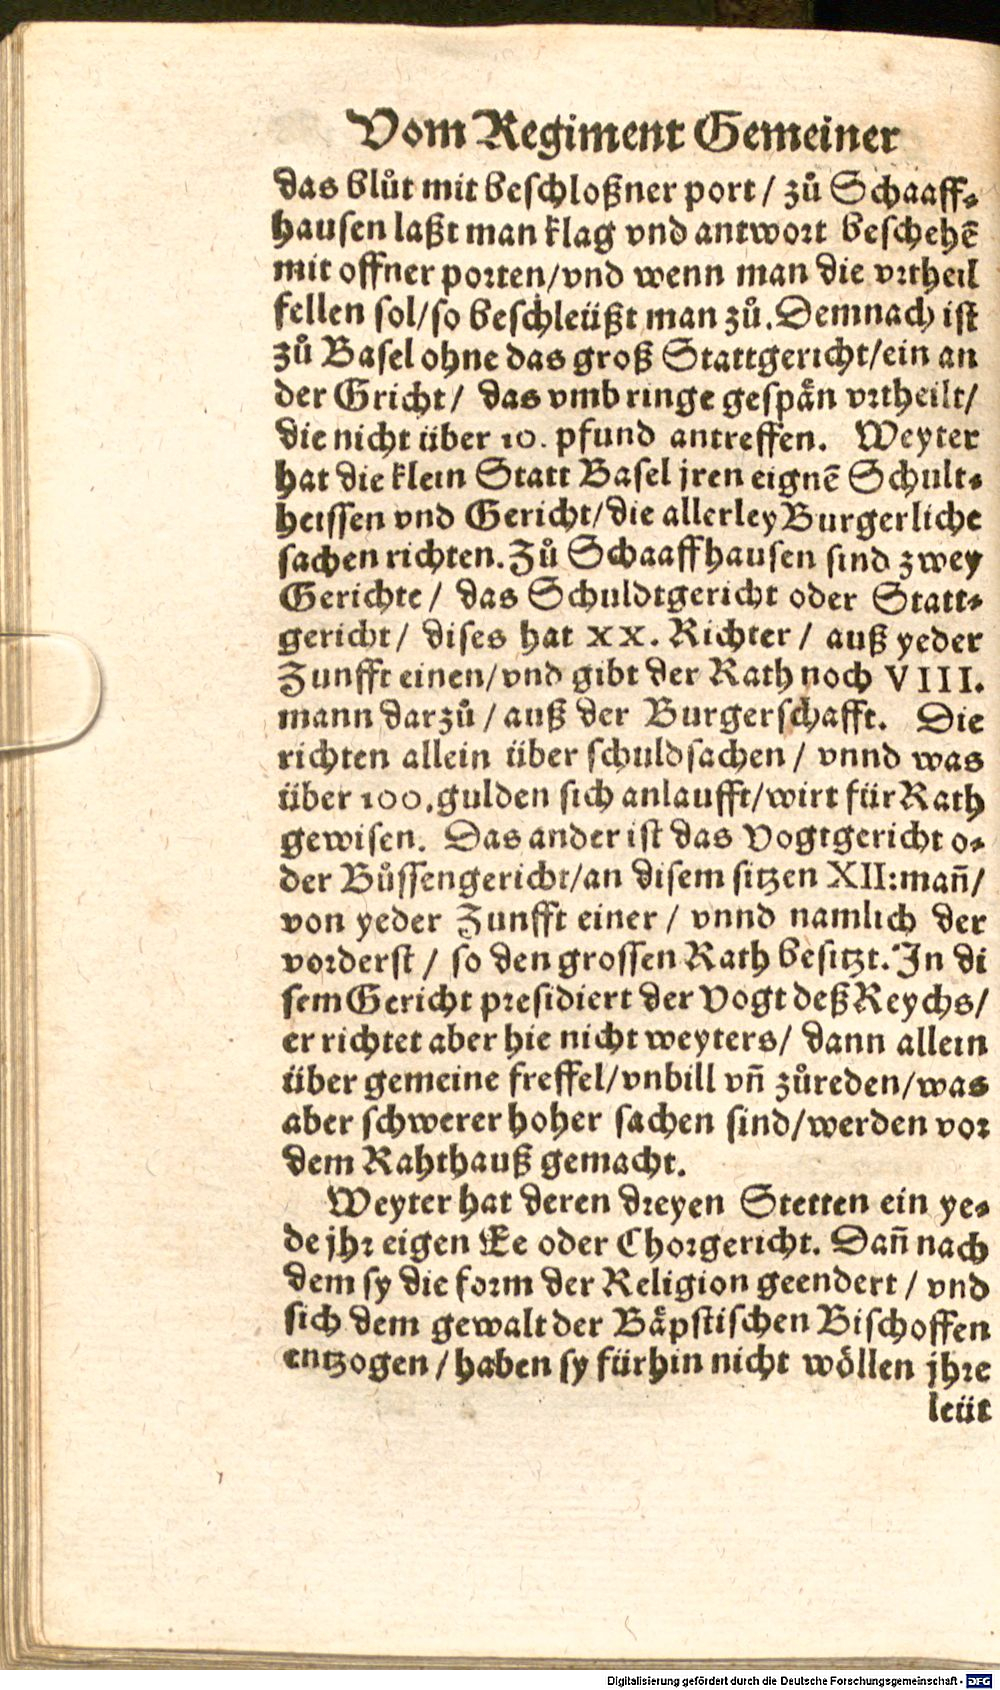 Vom Regiment Gemeiner
das blůt mit beschloßner port / zů Schaaff⸗
hausen laßt man klag vnd antwort beschehē
mit offner porten/vnd wenn man die vrtheil
fellen sol/so beschleüßt man zů. Demnach ist
zů Basel ohne das groß Stattgericht/ein an
der Gricht/ das vmb ringe gespån vrtheilt/
die nicht über 10. pfund antreffen. Weyter
hat die klein Statt Basel jren eignē Schult⸗
heissen vnd Gericht/die allerley Burgerliche
sachen richten. Zů Schaaffhausen sind zwey
Gerichte/ das Schuldtgericht oder Statt⸗
gericht/ dises hat XX. Richter / auß yeder
Zunfft einen/vnd gibt der Rath noch VIII.
mann darzů / auß der Burgerschafft. Die
richten allein über schuldsachen / vnnd was
über 100. gulden sich anlaufft/wirt für Rath
gewisen. Das ander ist das Vogtgericht o⸗
der Bůssengericht/an disem sitzen XII: man̄/
von yeder Zunfft einer / vnnd namlich der
vorderst / so den grossen Rath besitzt. In di
sem Gericht presidiert der Vogt deß Reychs/
er richtet aber hie nicht weyters/ dann allein
über gemeine freffel/vnbill vn̄ zůreden/was
aber schwerer hoher sachen sind/werden vor
dem Rahthauß gemacht.
Weyter hat deren dreyen Stetten ein ye⸗
de jhr eigen Ee oder Chorgericht. Dan̄ nach
dem sy die form der Religion geendert / vnd
sich dem gewalt der Båpstischen Bischoffen
entzogen / haben sy fürhin nicht wöllen jhre
leüt
Digitalisierung gefördert durch die Deutsche Forschungsgemeinschaft - DFG